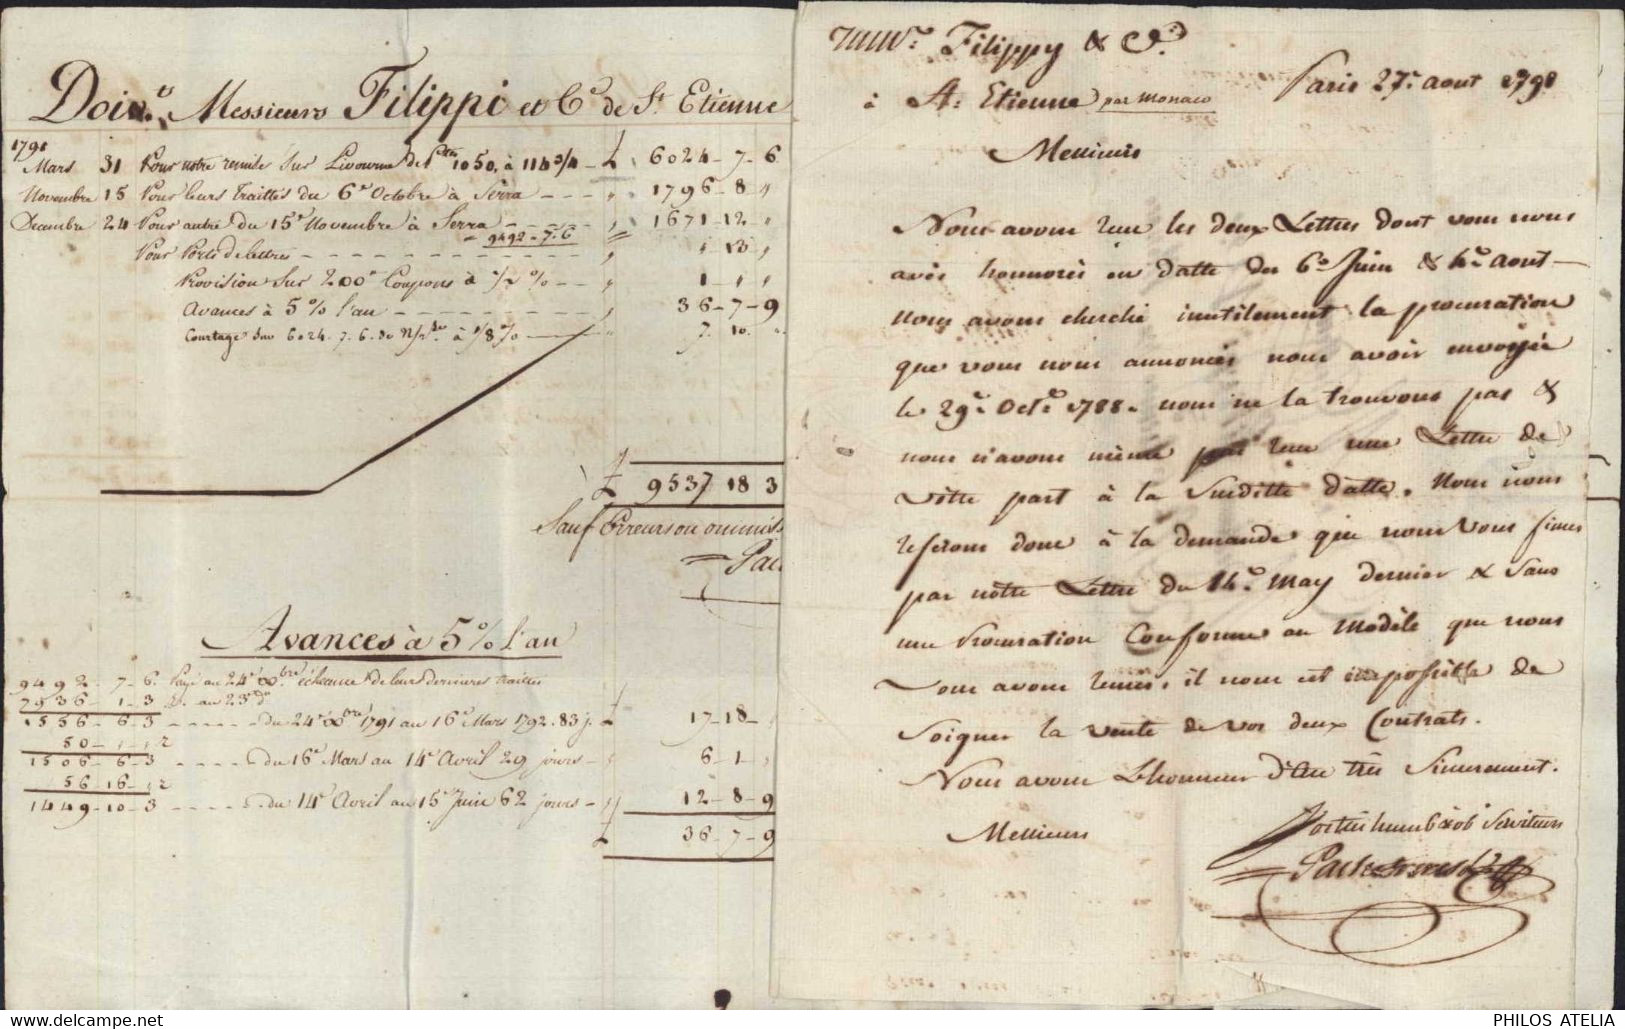 Doiv.t Messieurs Filippi et C.e de S.t Etienne
1791
Mars 31 Pour notre remise sur Livourne de P. 1050. à 114 3/4 - £ 6024 - 7 - 6
Novembre 15 Pour leurs traittes du 6.e Octobre à Serra - - - " 1796 - 8 "
Decembre 24 Pour autre du 15.e Novembre à Serra - - - - - " 1671 - 12 "
9492 - 7. 6
Pour Ports de lettres - - - - - - - - - - " " 13 "
Provision sur 200 Coupons à 1/2 % - - " 1 " "
Avances à 5 % l'an - - - - - - - - " 36 - 7 - 9
Courtage sur 6024. 7. 6. de à 1/8 % " 7. 10. "
£ 9537 18 3
Sauf Erreurs ou ommiss
Avances à 5 % l'an
9492 - 7 - 6. Payé au 24.e Xbre écheance de leurs dernieres traittes
7936 - 1 - 3 d.o au 23 d.o
1556 - 6 - 3 - - - - - du 24.e Xbre 1791 au 16.e Mars 1792. 83 j. £ 17 - 18 "
50 - " - "
1506 - 6 - 3 - - - - du 16.e Mars au 14.e Avril 29 jours - " 6 - 1 "
56 - 16 - "
1449 - 10 - 3 - - - - - du 14.e Avril au 15.e Juin 62 jours - " 12 - 8 - 9
£ 36 - 7 - 9
Filippy & C.e
à St. Etienne par Monaco
Paris 27.e aout 1791
Messieurs
Nous avons recu les deux Lettres dont vous nous
avés honnorés en datte des 6.e Juin & 4.e aout -
nous avons cherché inutilement la procuration
que vous nous annoncés nous avoir envoyée
le 29.e Oct.e 1788. nous ne la trouvons pas &
nous n'avons même pas recu une Lettre de
votre part à la susditte datte. Nous nous
referons donc à la demande que nous vous fimes
par notre Lettre du 14.e May dernier & sans
une Procuration Conforme au Modèle que nous
vous avons remis, il nous est impossible de
soigner la vente de vos deux Contrats.
Nous avons L'honneur d'être très sincerement.
Messieurs
Vos très humb & ob Serviteurs
PHILOS ATELIA